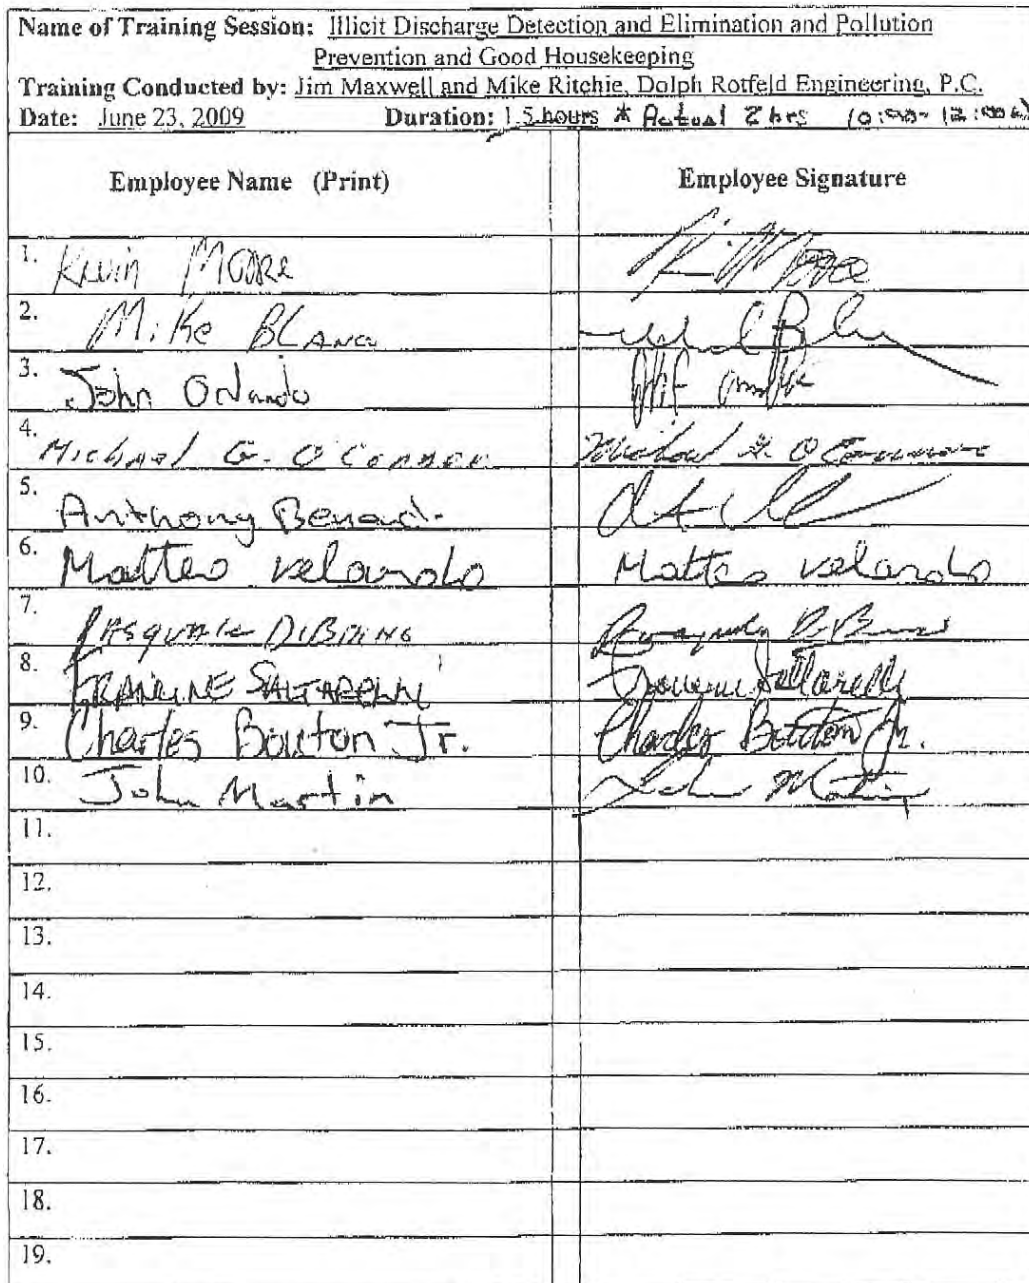 Name of Training Session: Illicit Discharge Detection and Elimination and Pollution
Prevention and Good Housekeeping
Training Conducted by: Jim Maxwell and Mike Ritchie, Dolph Rotfeld Engineering, P.C.
Date: June 23, 2009 Duration: 1.5 hours * Actual 2 hrs
Employee Name (Print) Employee Signature
1. Kevin Moore K. Moore
2. Mike
3. John Orlando
4. Michael G. O'Connor Michael G. O'Connor
5. Anthony
6. Matteo Velardo Matteo Velardo
7. Pasquale
8. FRANCINE
9. Charles Bouton Jr. Charles Bouton Jr.
10. John Martin John Martin
11.
12.
13.
14.
15.
16.
17.
18.
19.